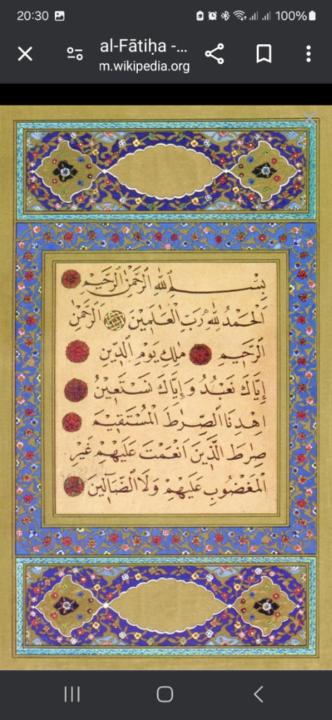 20:30 100%
al-Fātiḥa -...
m.wikipedia.org
بِسْمِ اللهِ الرَّحْمٰنِ الرَّحِيمِ
اَلْحَمْدُ لِلّٰهِ رَبِّ الْعَالَمِينَ الرَّحْمٰنِ
الرَّحِيمِ مٰلِكِ يَوْمِ الدِّينِ
اِيَّاكَ نَعْبُدُ وَاِيَّاكَ نَسْتَعِينُ
اِهْدِنَا الصِّرَاطَ الْمُسْتَقِيمَ
صِرَاطَ الَّذِينَ اَنْعَمْتَ عَلَيْهِمْ غَيْرِ
الْمَغْضُوبِ عَلَيْهِمْ وَلَا الضَّالِّينَ